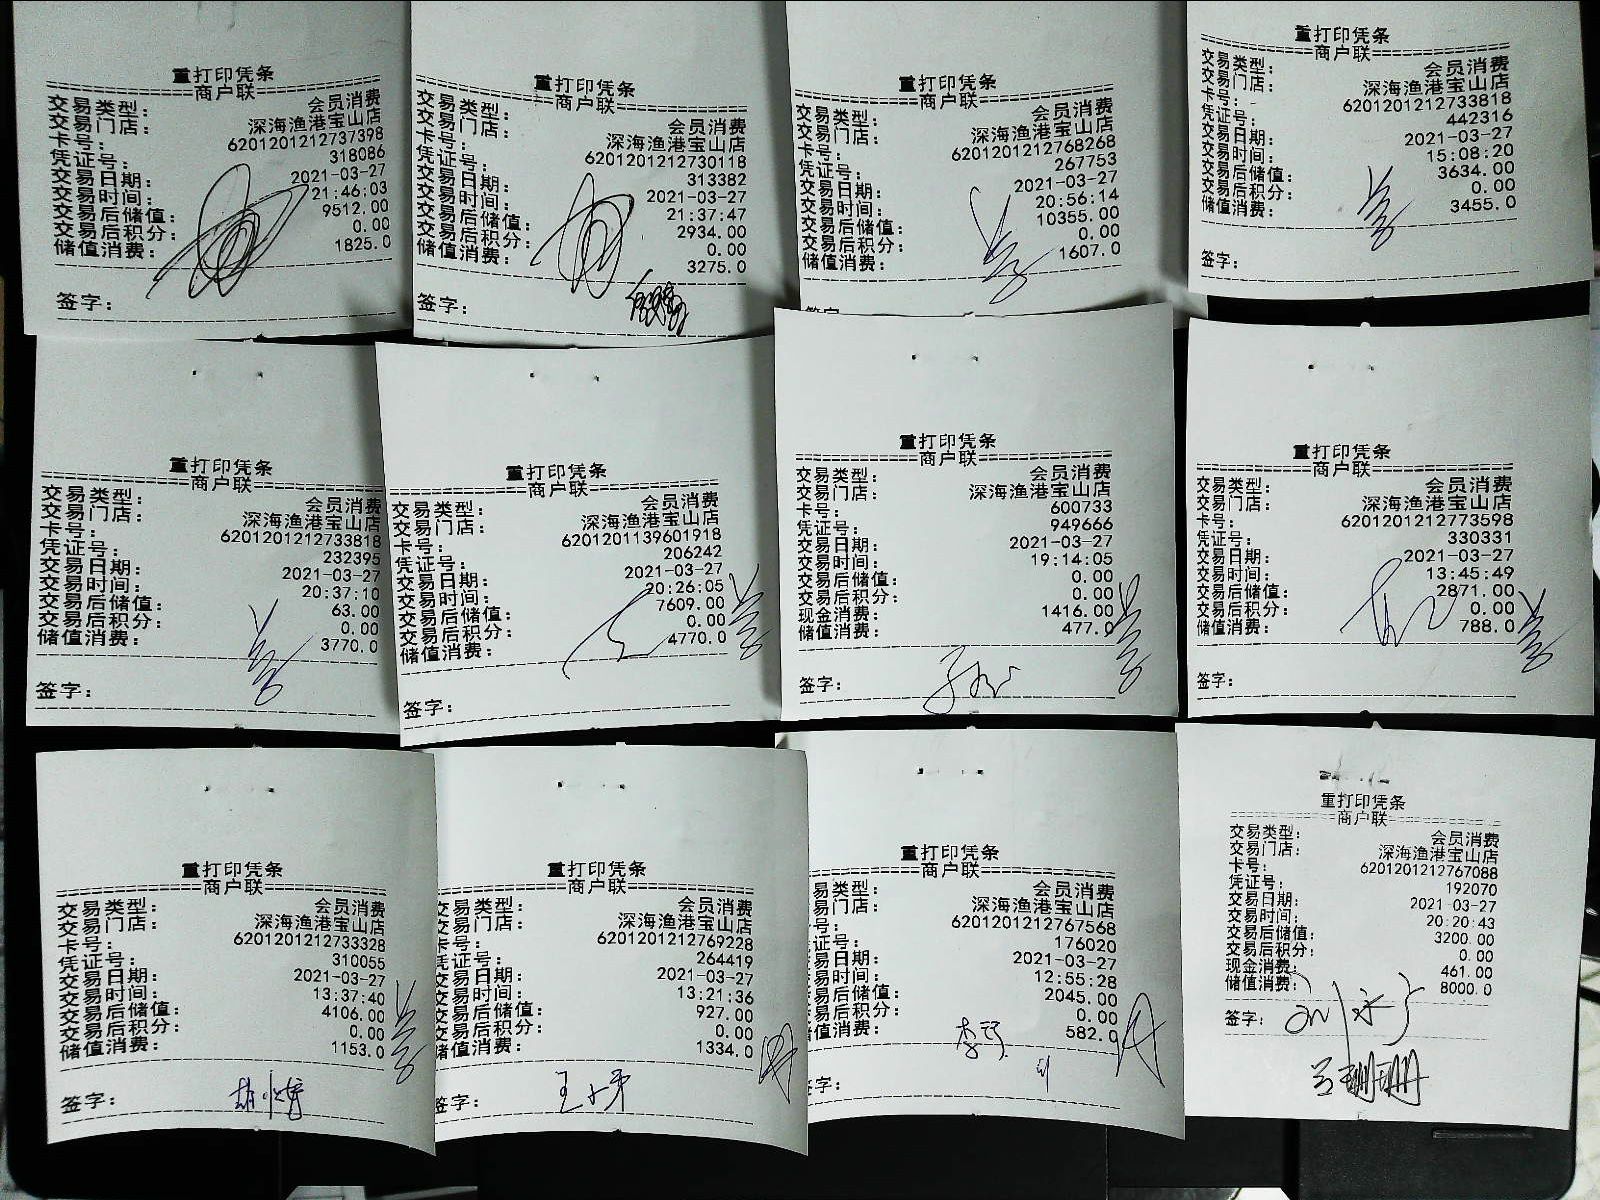 重打印凭条
商户联
交易类型： 会员消费
交易门店： 深海渔港宝山店
卡号： 6201201212737398
凭证号： 318086
交易日期： 2021-03-27
交易时间： 21:46:03
交易后储值： 9512.00
交易后积分： 0.00
储值消费： 1825.0
签字：
重打印凭条
商户联
交易类型： 会员消费
交易门店： 深海渔港宝山店
卡号： 6201201212730118
凭证号： 313382
交易日期： 2021-03-27
交易时间： 21:37:47
交易后储值： 2934.00
交易后积分： 0.00
储值消费： 3275.0
签字：
重打印凭条
商户联
交易类型： 会员消费
交易门店： 深海渔港宝山店
卡号： 6201201212768268
凭证号： 267753
交易日期： 2021-03-27
交易时间： 20:56:14
交易后储值： 10355.00
交易后积分： 0.00
储值消费： 1607.0
签字：
重打印凭条
商户联
交易类型： 会员消费
交易门店： 深海渔港宝山店
卡号： 6201201212733818
凭证号： 442316
交易日期： 2021-03-27
交易时间： 15:08:20
交易后储值： 3634.00
交易后积分： 0.00
储值消费： 3455.0
签字：
重打印凭条
商户联
交易类型： 会员消费
交易门店： 深海渔港宝山店
卡号： 6201201212733818
凭证号： 232395
交易日期： 2021-03-27
交易时间： 20:37:10
交易后储值： 63.00
交易后积分： 0.00
储值消费： 3770.0
签字：
重打印凭条
商户联
交易类型： 会员消费
交易门店： 深海渔港宝山店
卡号： 6201201139601918
凭证号： 206242
交易日期： 2021-03-27
交易时间： 20:26:05
交易后储值： 7609.00
交易后积分： 0.00
储值消费： 4770.0
签字：
重打印凭条
商户联
交易类型： 会员消费
交易门店： 深海渔港宝山店
卡号： 600733
凭证号： 949666
交易日期： 2021-03-27
交易时间： 19:14:05
交易后储值： 0.00
交易后积分： 0.00
现金消费： 1416.00
储值消费： 477.0
签字：
重打印凭条
商户联
交易类型： 会员消费
交易门店： 深海渔港宝山店
卡号： 6201201212773598
凭证号： 330331
交易日期： 2021-03-27
交易时间： 13:45:49
交易后储值： 2871.00
交易后积分： 0.00
储值消费： 788.0
签字：
重打印凭条
商户联
交易类型： 会员消费
交易门店： 深海渔港宝山店
卡号： 6201201212733328
凭证号： 310055
交易日期： 2021-03-27
交易时间： 13:37:40
交易后储值： 4106.00
交易后积分： 0.00
储值消费： 1153.0
签字：
重打印凭条
商户联
交易类型： 会员消费
交易门店： 深海渔港宝山店
卡号： 6201201212769228
凭证号： 264419
交易日期： 2021-03-27
交易时间： 13:21:36
交易后储值： 927.00
交易后积分： 0.00
储值消费： 1334.0
签字：
重打印凭条
商户联
易类型： 会员消费
易门店： 深海渔港宝山店
号： 6201201212767568
证号： 176020
易日期： 2021-03-27
易时间： 12:55:28
易后储值： 2045.00
易后积分： 0.00
值消费： 582.0
字：
重打印凭条
商户联
交易类型： 会员消费
交易门店： 深海渔港宝山店
卡号： 6201201212767088
凭证号： 192070
交易日期： 2021-03-27
交易时间： 20:20:43
交易后储值： 3200.00
交易后积分： 0.00
现金消费： 461.00
储值消费： 8000.0
签字：